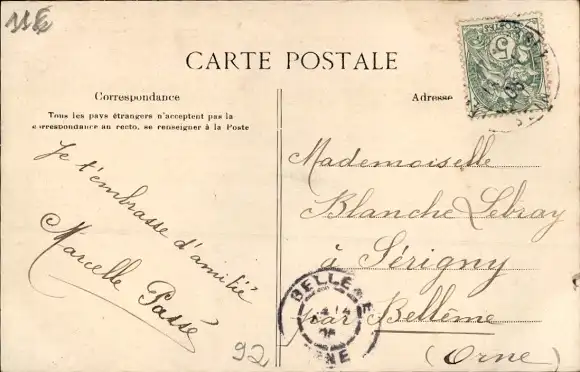 11€
CARTE POSTALE
Correspondance
Tous les pays étrangers n'acceptent pas la
correspondance au recto, se renseigner à la Poste
Adresse
Je t'embrasse d'amitié
Marcelle Passé
Mademoiselle
Blanche Lebray
à Sérigny
par Bellême
(Orne)
BELLEME
ORNE
92
5